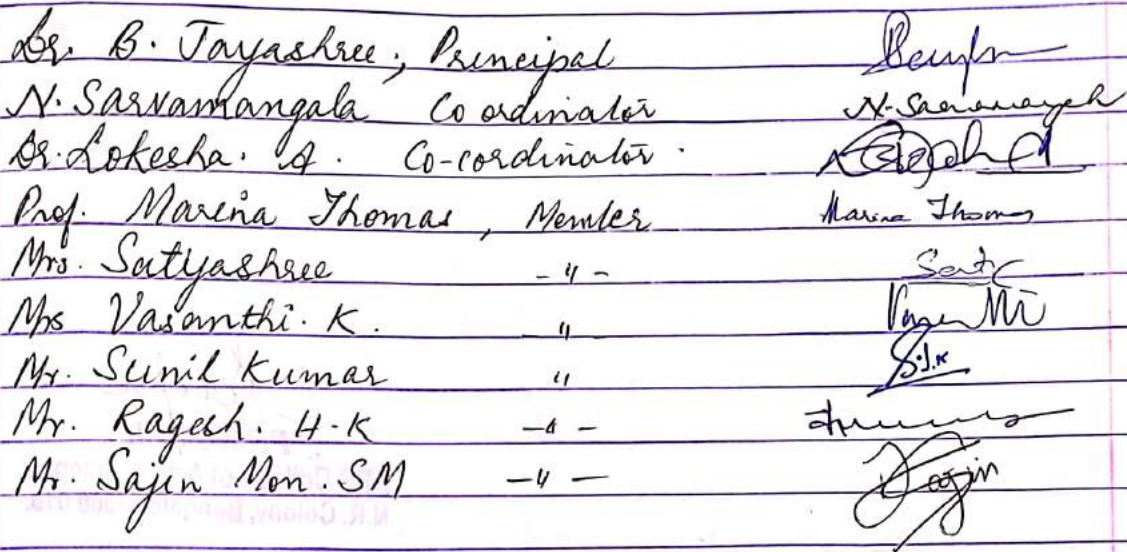 Dr. B. Jayashree, Principal
N. Sarvamangala Coordinator N. Sarvamangala
Dr. Lokesha. A. Co-cordinator.
Prof. Marina Thomas, Member Marina Thomas
Mrs. Satyashree -"-
Mrs Vasanthi. K. "
Mr. Sunil Kumar " S.J.K
Mr. Ragesh. H.K -"-
Mr. Sajin Mon. SM -"- Sajin
N.R. Colony,